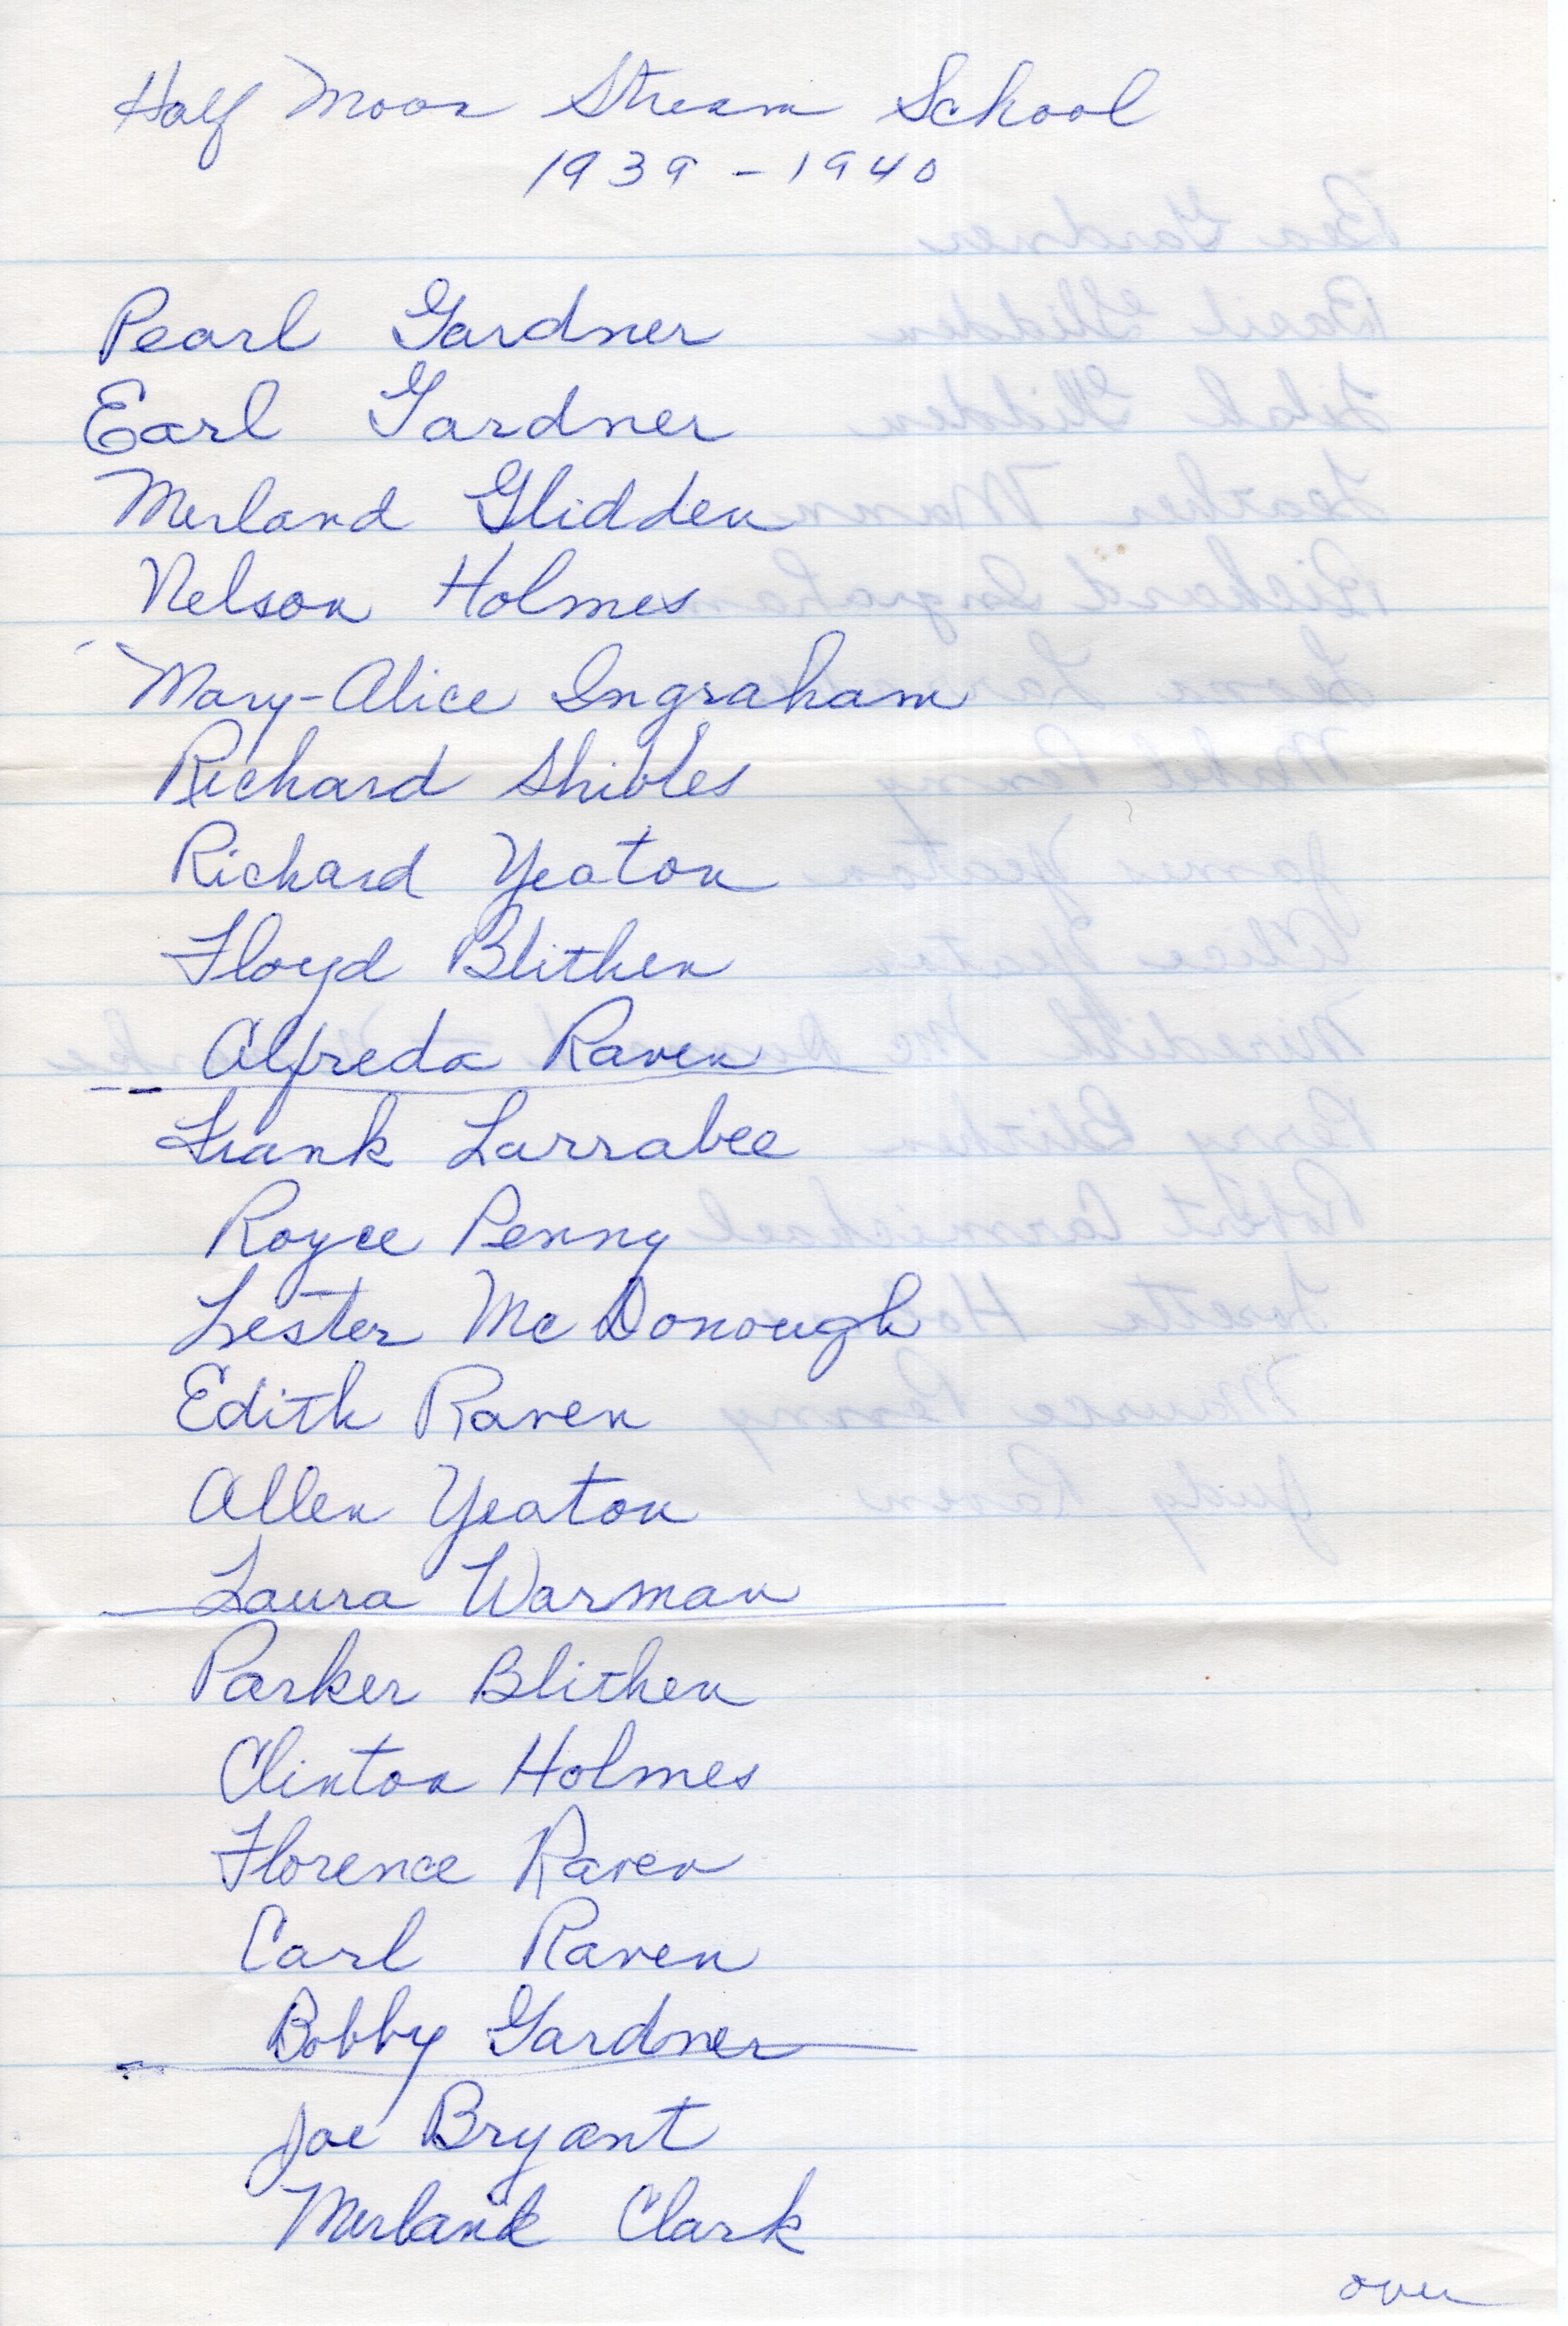 Half Moon Stream School
1939 - 1940
Pearl Gardner
Earl Gardner
Merland Glidden
Nelson Holmes
Mary-Alice Ingraham
Richard Shibles
Richard Yeaton
Floyd Blithen
Alfreda Raven
Frank Larrabee
Royce Penny
Lester McDonough
Edith Raven
Allen Yeaton
Laura Warman
Parker Blithen
Clinton Holmes
Florence Raven
Carl Raven
Bobby Gardner
Joe Bryant
Merland Clark
over